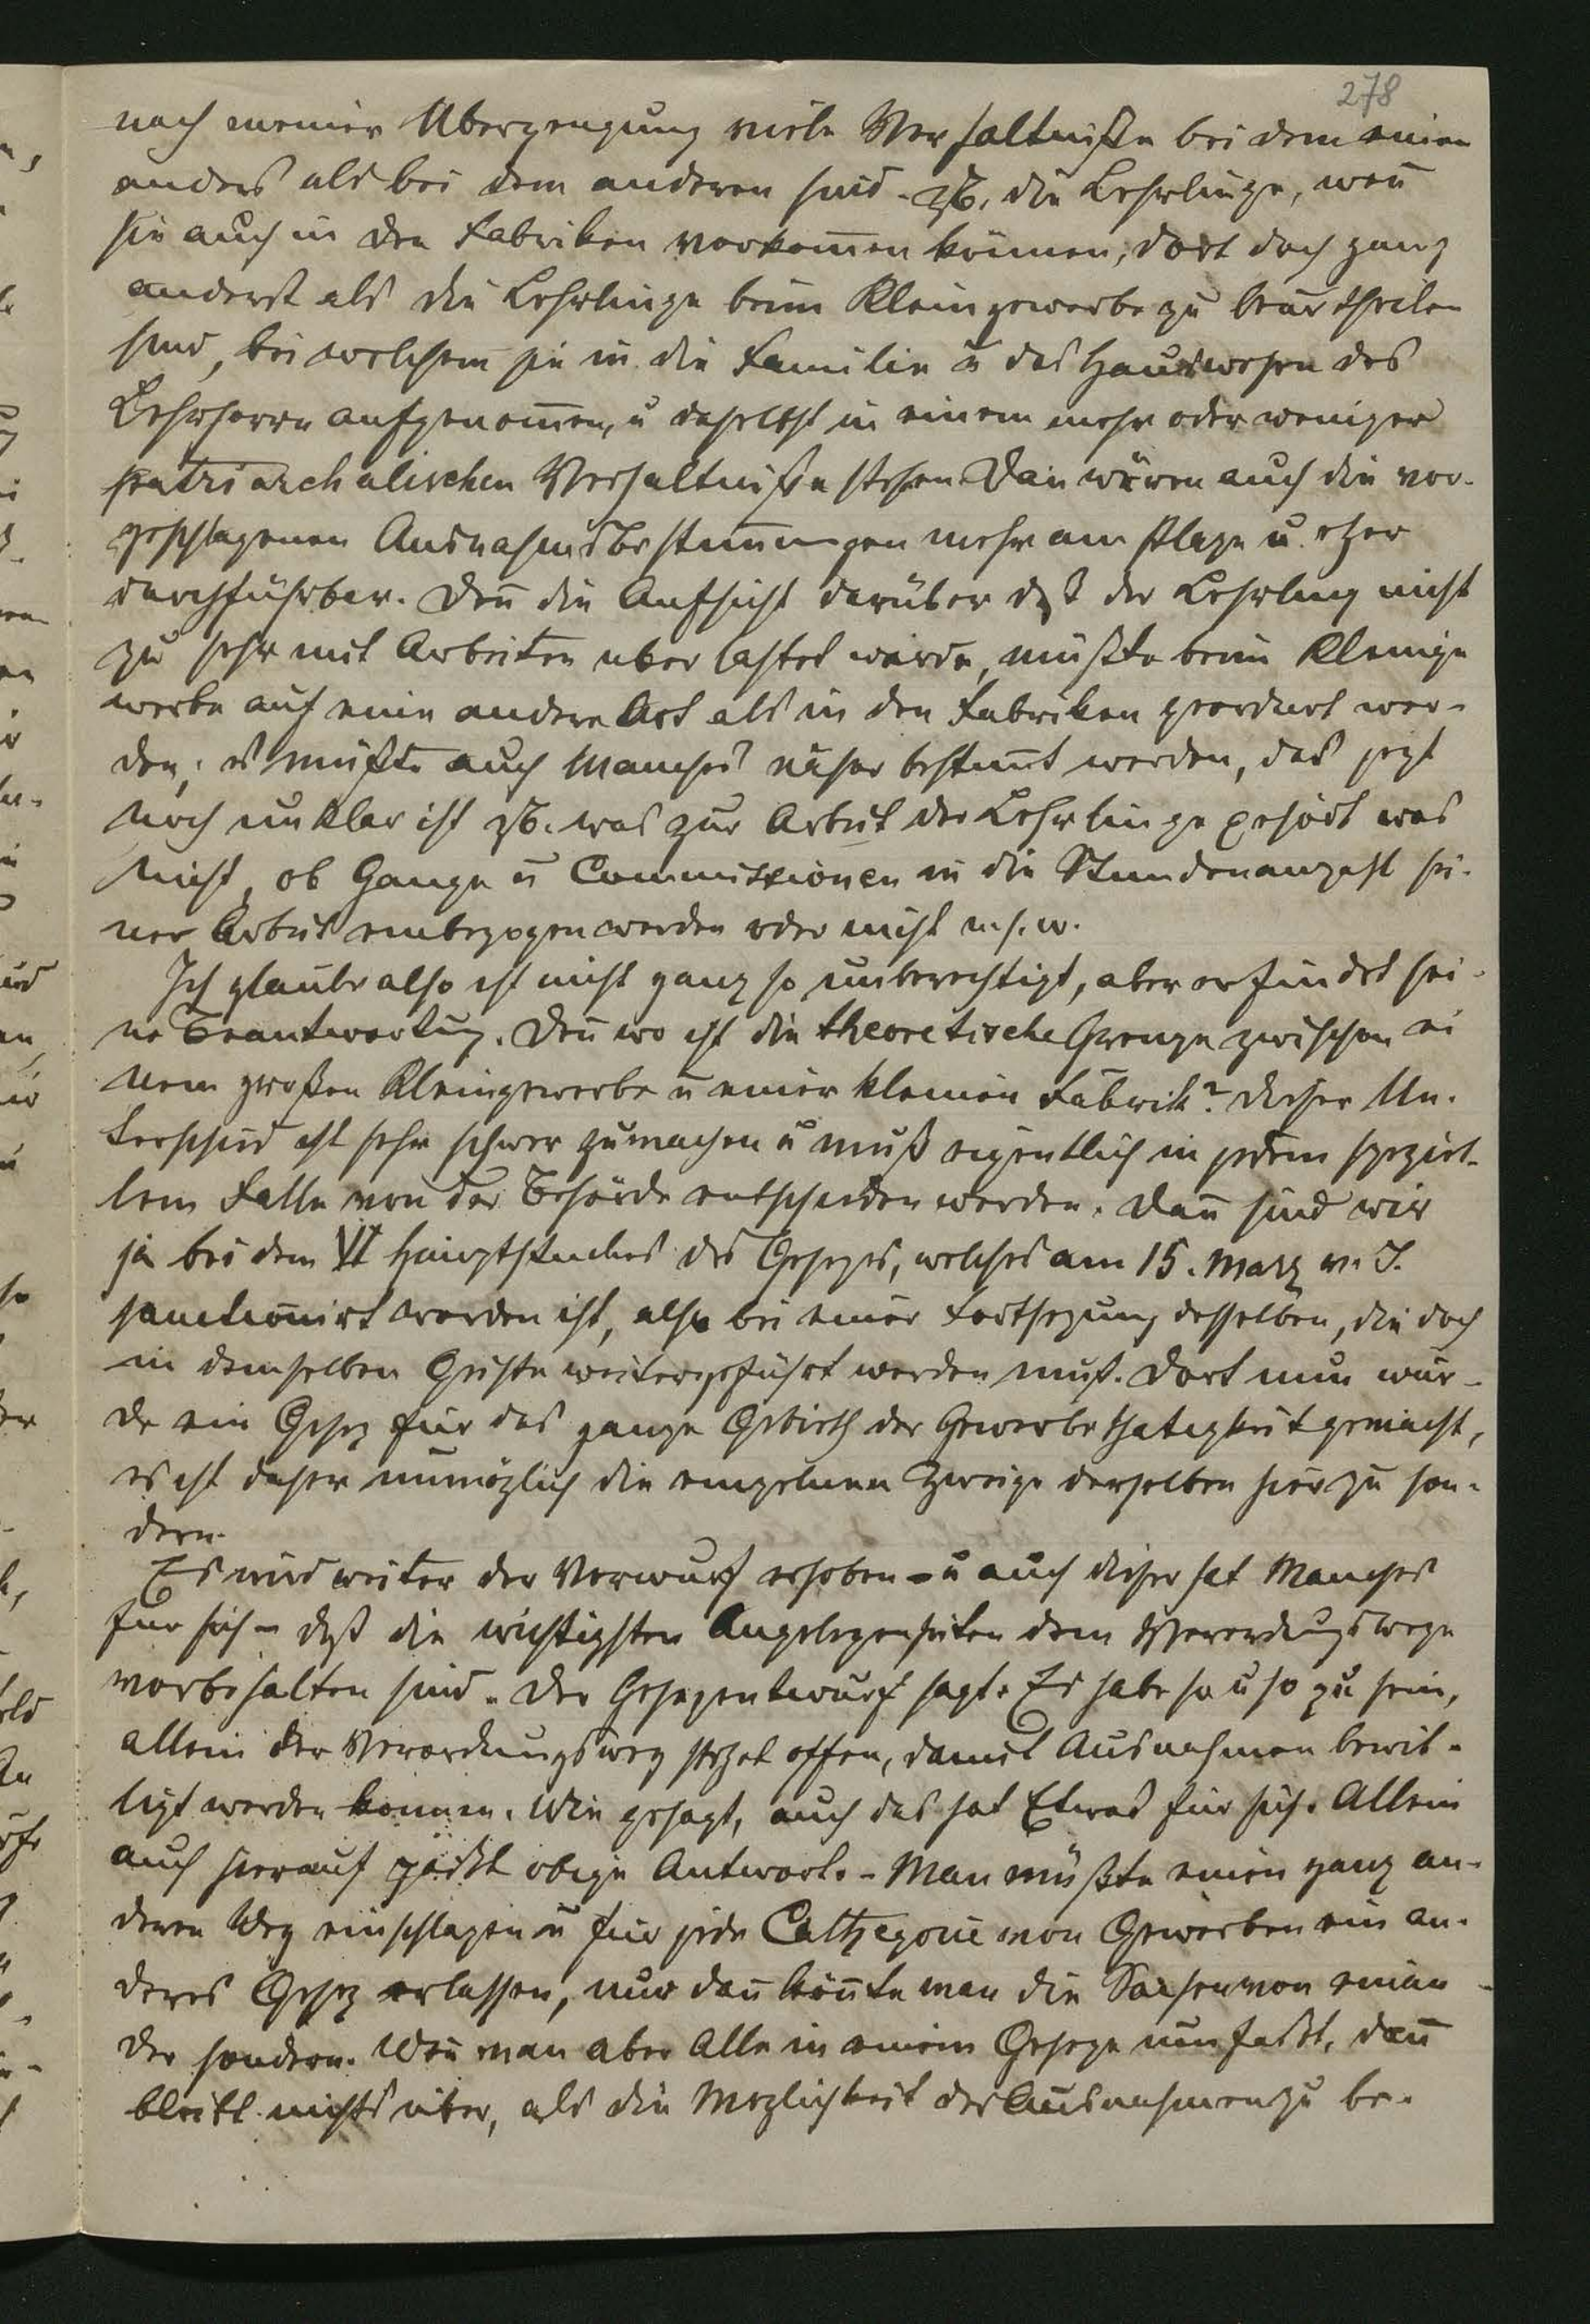 278
nach meiner Überzeugung viele Verhältniße bei dem einen
anders als bei dem anderen sind. zB. die Lehrlinge, wen̄
sie auch in den Fabriken vorkom̄en können, dort doch ganz
anders als die Lehrlinge beim Kleingewerbe zu beurtheilen
sind, bei welchem sie in die Familie u das Hauswesen des
Lehrherrn aufgenom̄en, u daselbst in einem mehr oder weniger
patriarchalischen Verhältniße stehen. Dan̄ wären auch die vor-
geschlagenen Ausnahmsbestim̄ungen mehr am Plaze u. eher
durchführbar. Den̄ die Aufsicht darüber daß der Lehrling nicht
zu sehr mit Arbeiten überlastet würde, müßte beim Kleinge
werbe auf eine andere Art als in den Fabriken geordnet wer-
den; es müßte auch Manches näher bestim̄t werden, das jezt
noch unklar ist zB. was zur Arbeit der Lehrlinge gehört was
nicht, ob Gänge u Commissionen in die Stundenanzahl sei-
ner Arbeit einbezogen werden oder nicht u. s. w.
Ich glaube also ist nicht ganz so unberechtigt, aber er findet sei-
ne Beantwortung. Den̄ wo ist die theoretische Grenze zwischen ei
nem großen Kleingewerbe u einer kleinen Fabrik? Dieser Un-
terschied ist sehr schwer zu machen u muß eigentlich in jedem speziel-
lem Falle von der Behörde entschieden werden. Dan̄ sind wir
ja bei dem VI Hauptstuckes des Gesezes, welches am 15. März v. J.
sanctionirt worden ist, also bei einer Fortsezung desselben, die doch
in demselben Geiste weitergeführt werden muß. Dort nun wur-
de ein Gesez für das ganze Gebieth der Gewerbethätigkeit gemacht,
es ist daher unmöglich die einzelnen Zweige derselben hier zu son-
dern.
Es wird weiter der Vorwurf erhoben – u auch dieser hat Manches
für sich – daß die wichtigsten Angelegenheiten dem Verordungswege
vorbehalten sind. Der Gesezentwurf sagt. Es habe so u so zu sein,
allein der Verordungsweg stehet offen, damit Ausnahmen bewil-
ligt werden können. Wie gesagt, auch das hat Etwas für sich. Allein
auch hierauf paßt obige Antwort. – Man müßte einen ganz an-
deren Weg einschlagen u für jede Cathegorie von Gewerben ein an-
deres Gesez erlassen, nur dan̄ kön̄te man die Sachen von einan-
der sondern. Wen̄ man aber Alle in einem Geseze umfaßt, dan̄
bleibt nichts über, als die Möglichkeit der Ausnahmen zu be-